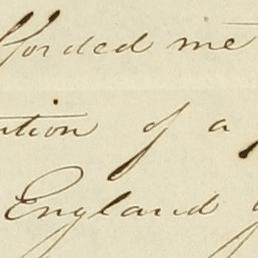 fforded me
ution of a
England